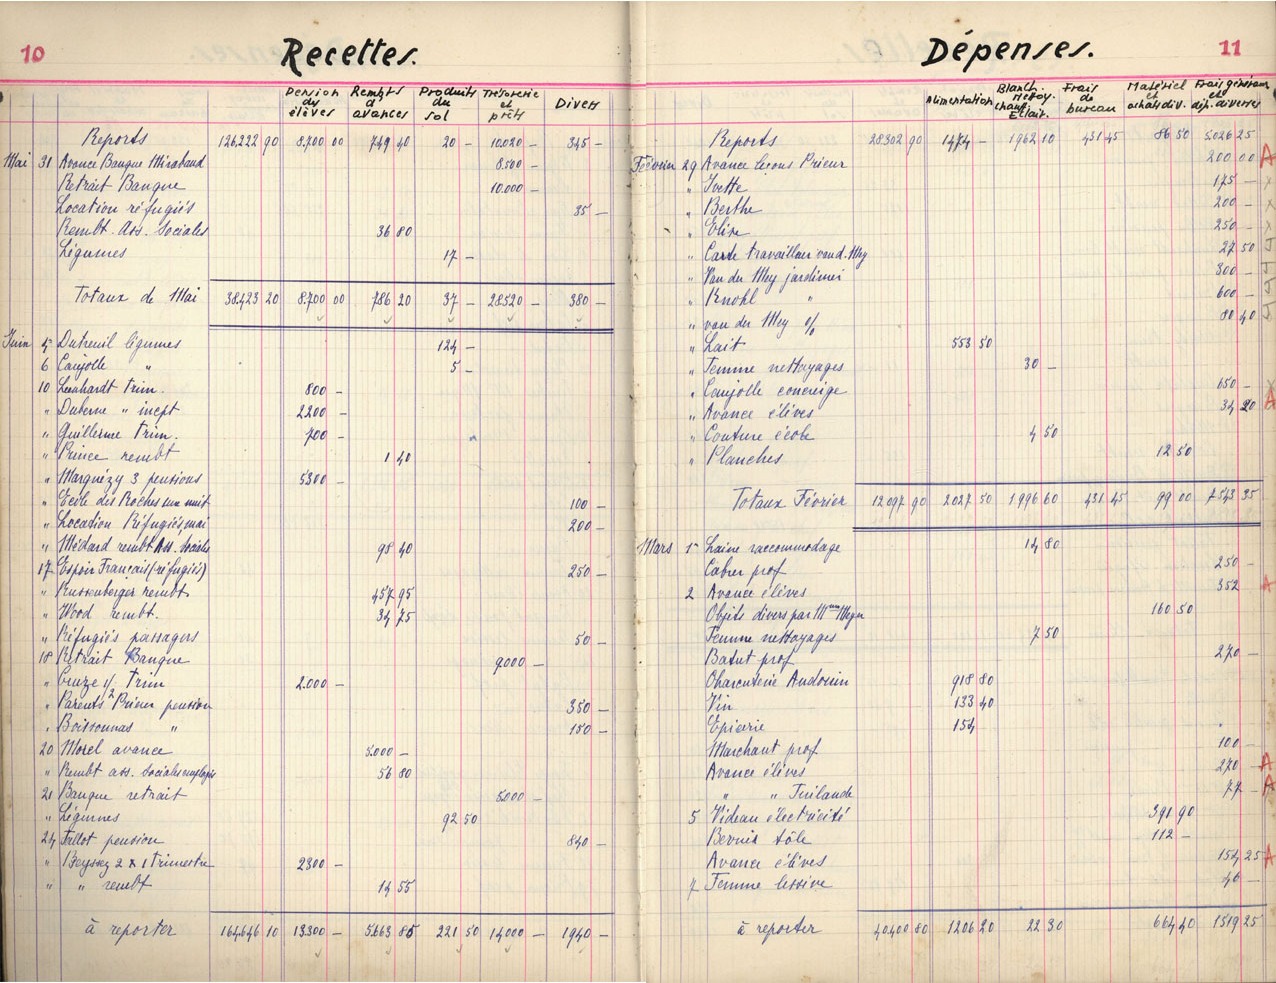 10 Recettes.
Pension des élèves | Rembts d avances | Produits du sol | Trésorerie et prêts | Divers
Reports 126.222 90 8.700 00 749 40 20 - 10.020 - 345 -
Mai 31 Avance Banque Mirabaud 8.500 -
Retrait Banque 10.000 -
Location réfugiés 35 -
Rembt. Ass. Sociales 36 80
Légumes 17 -
Totaux de Mai 38,423 20 8.700 00 786 20 37 - 28520 - 380 -
Juin Dutreuil légumes 124 -
6 Caujolle " 5 -
10 Leenhardt trim. 800 -
" Duberne " incpt 2200 -
" Guillerme trim. 700 -
" Prince rembt 1 40
" Marquézy 3 pensions 5300 -
" Ecole des Roches une nuit 100 -
" Location Réfugiés, mai 200 -
" Médard rembt Ass. Sociales 98 40
17 Espoir Français (réfugiés) 250 -
" Russenberger rembt 457 95
" Wood rembt. 34 75
" Réfugiés passagers 50 -
18 Retrait Banque 9000 -
" Cruze 1/2 trim 2.000 -
" Parents Prieur pension 350 -
" Boissonnas " 150 -
20 Morel avance 5.000 -
" Rembt ass. Sociales employés 56 80
21 Banque retrait 5.000 -
" Légumes 92 50
24 Fallot pension 840 -
" Beyssez 2 x 1 trimestre 2300 -
" " rembt 14 55
à reporter 164,646 10 13300 - 5.663 85 221 50 14000 - 1940 -
Dépenses. 11
Alimentation | Blanch. Nettoy. chauf. Eclair. | Frais de bureau | Matériel et achats div. | Frais généraux et dép. diverses
Reports 28302 90 1474 - 1962 10 431 45 86 50 5.026 25
Février 29 Avance leçons Prieur 200 00 A
" Yvette 175 -
" Berthe 200 -
" Elise 250 -
" Carte travailleur van d. Mey 27 50
" Van der Mey jardinier 300 -
" Knohl " 600 -
" van der Mey % 80 40
" Lait 553 50
" Femme nettoyages 30 -
" Caujolle concierge 650 -
" Avance élèves 34 20 A
" Couture école 4 50
" Planches 12 50
Totaux Février 12097 90 2027 50 1996 60 431 45 99 00 7543 35
Mars 1er Laine raccommodage 14 80
Cabrer prof 250 -
2 Avance élèves 352 A
Objets divers par Mme Meyer 160 50
Femme nettoyages 7 50
Batut prof 270 -
Charcuterie Audouin 918 80
Vin 133 40
Epicerie 154
Marchant prof 100 -
Avance élèves 270 - A
" " Tuilande 77 - A
5 Videau électricité 391 90
Bernis tôle 112 -
Avance élèves 154 25 A
7 Femme lessive 46 -
à reporter 40400 80 1206 20 22 30 664 40 1519 25